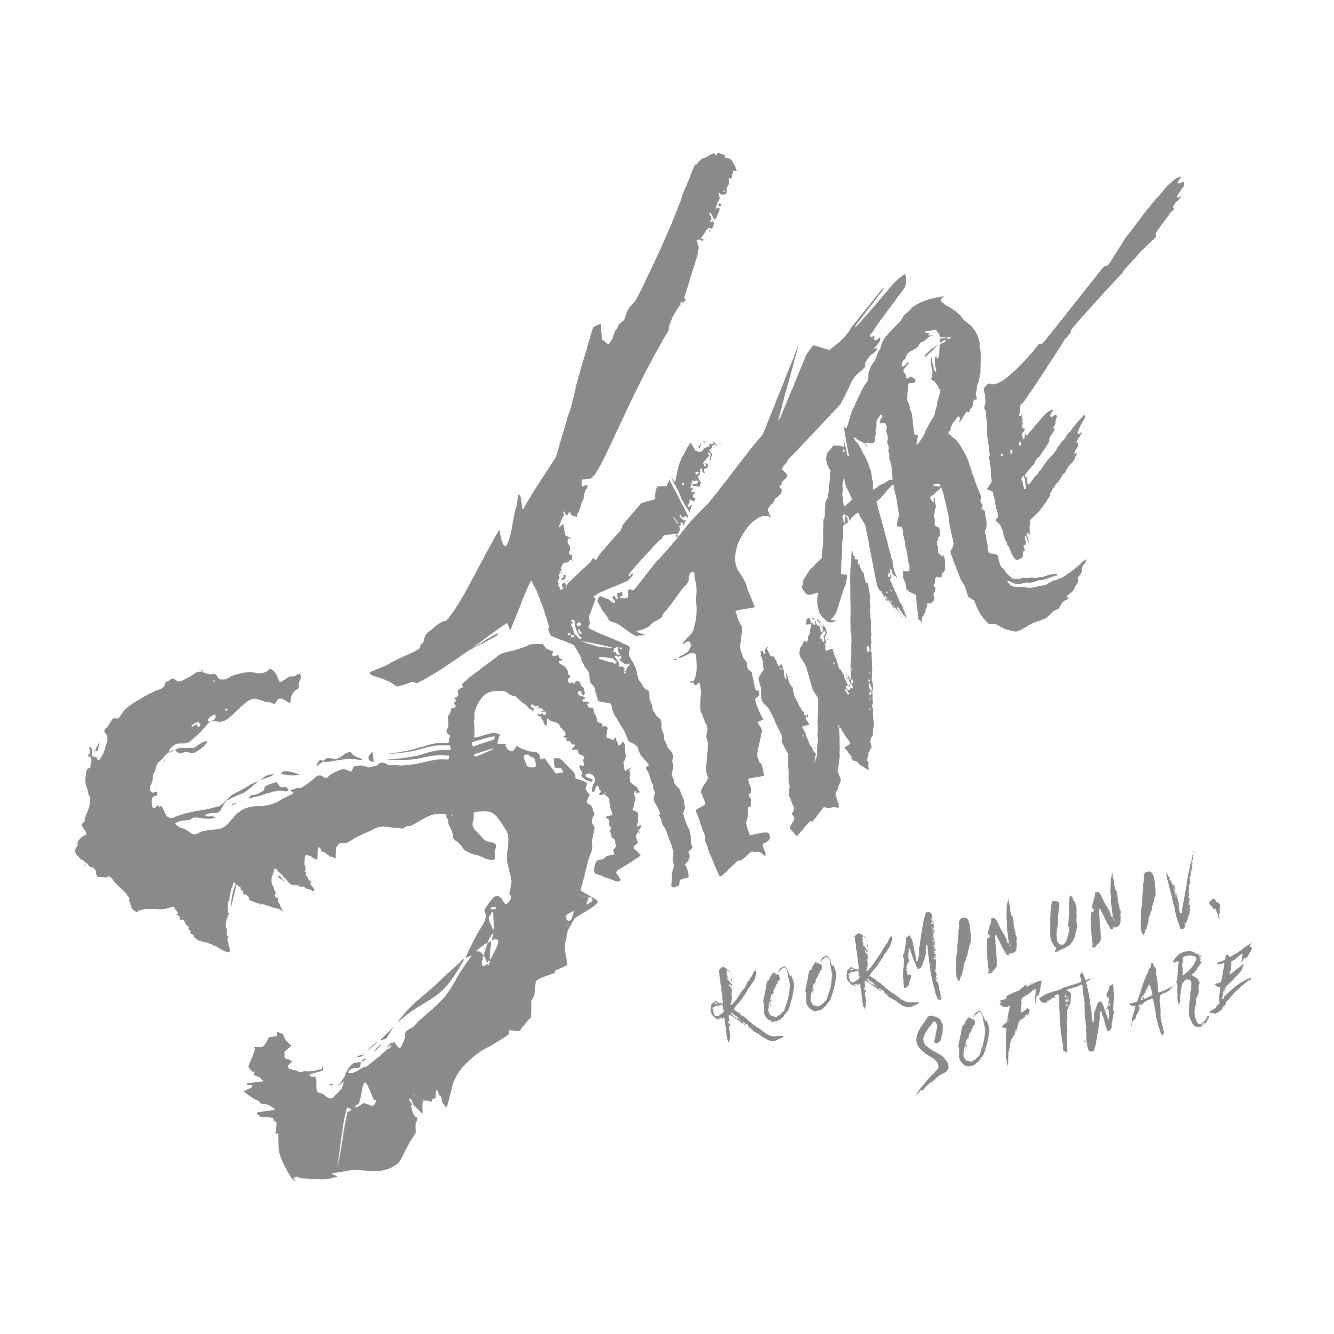 SOFTWARE
KOOKMIN UNIV.
SOFTWARE